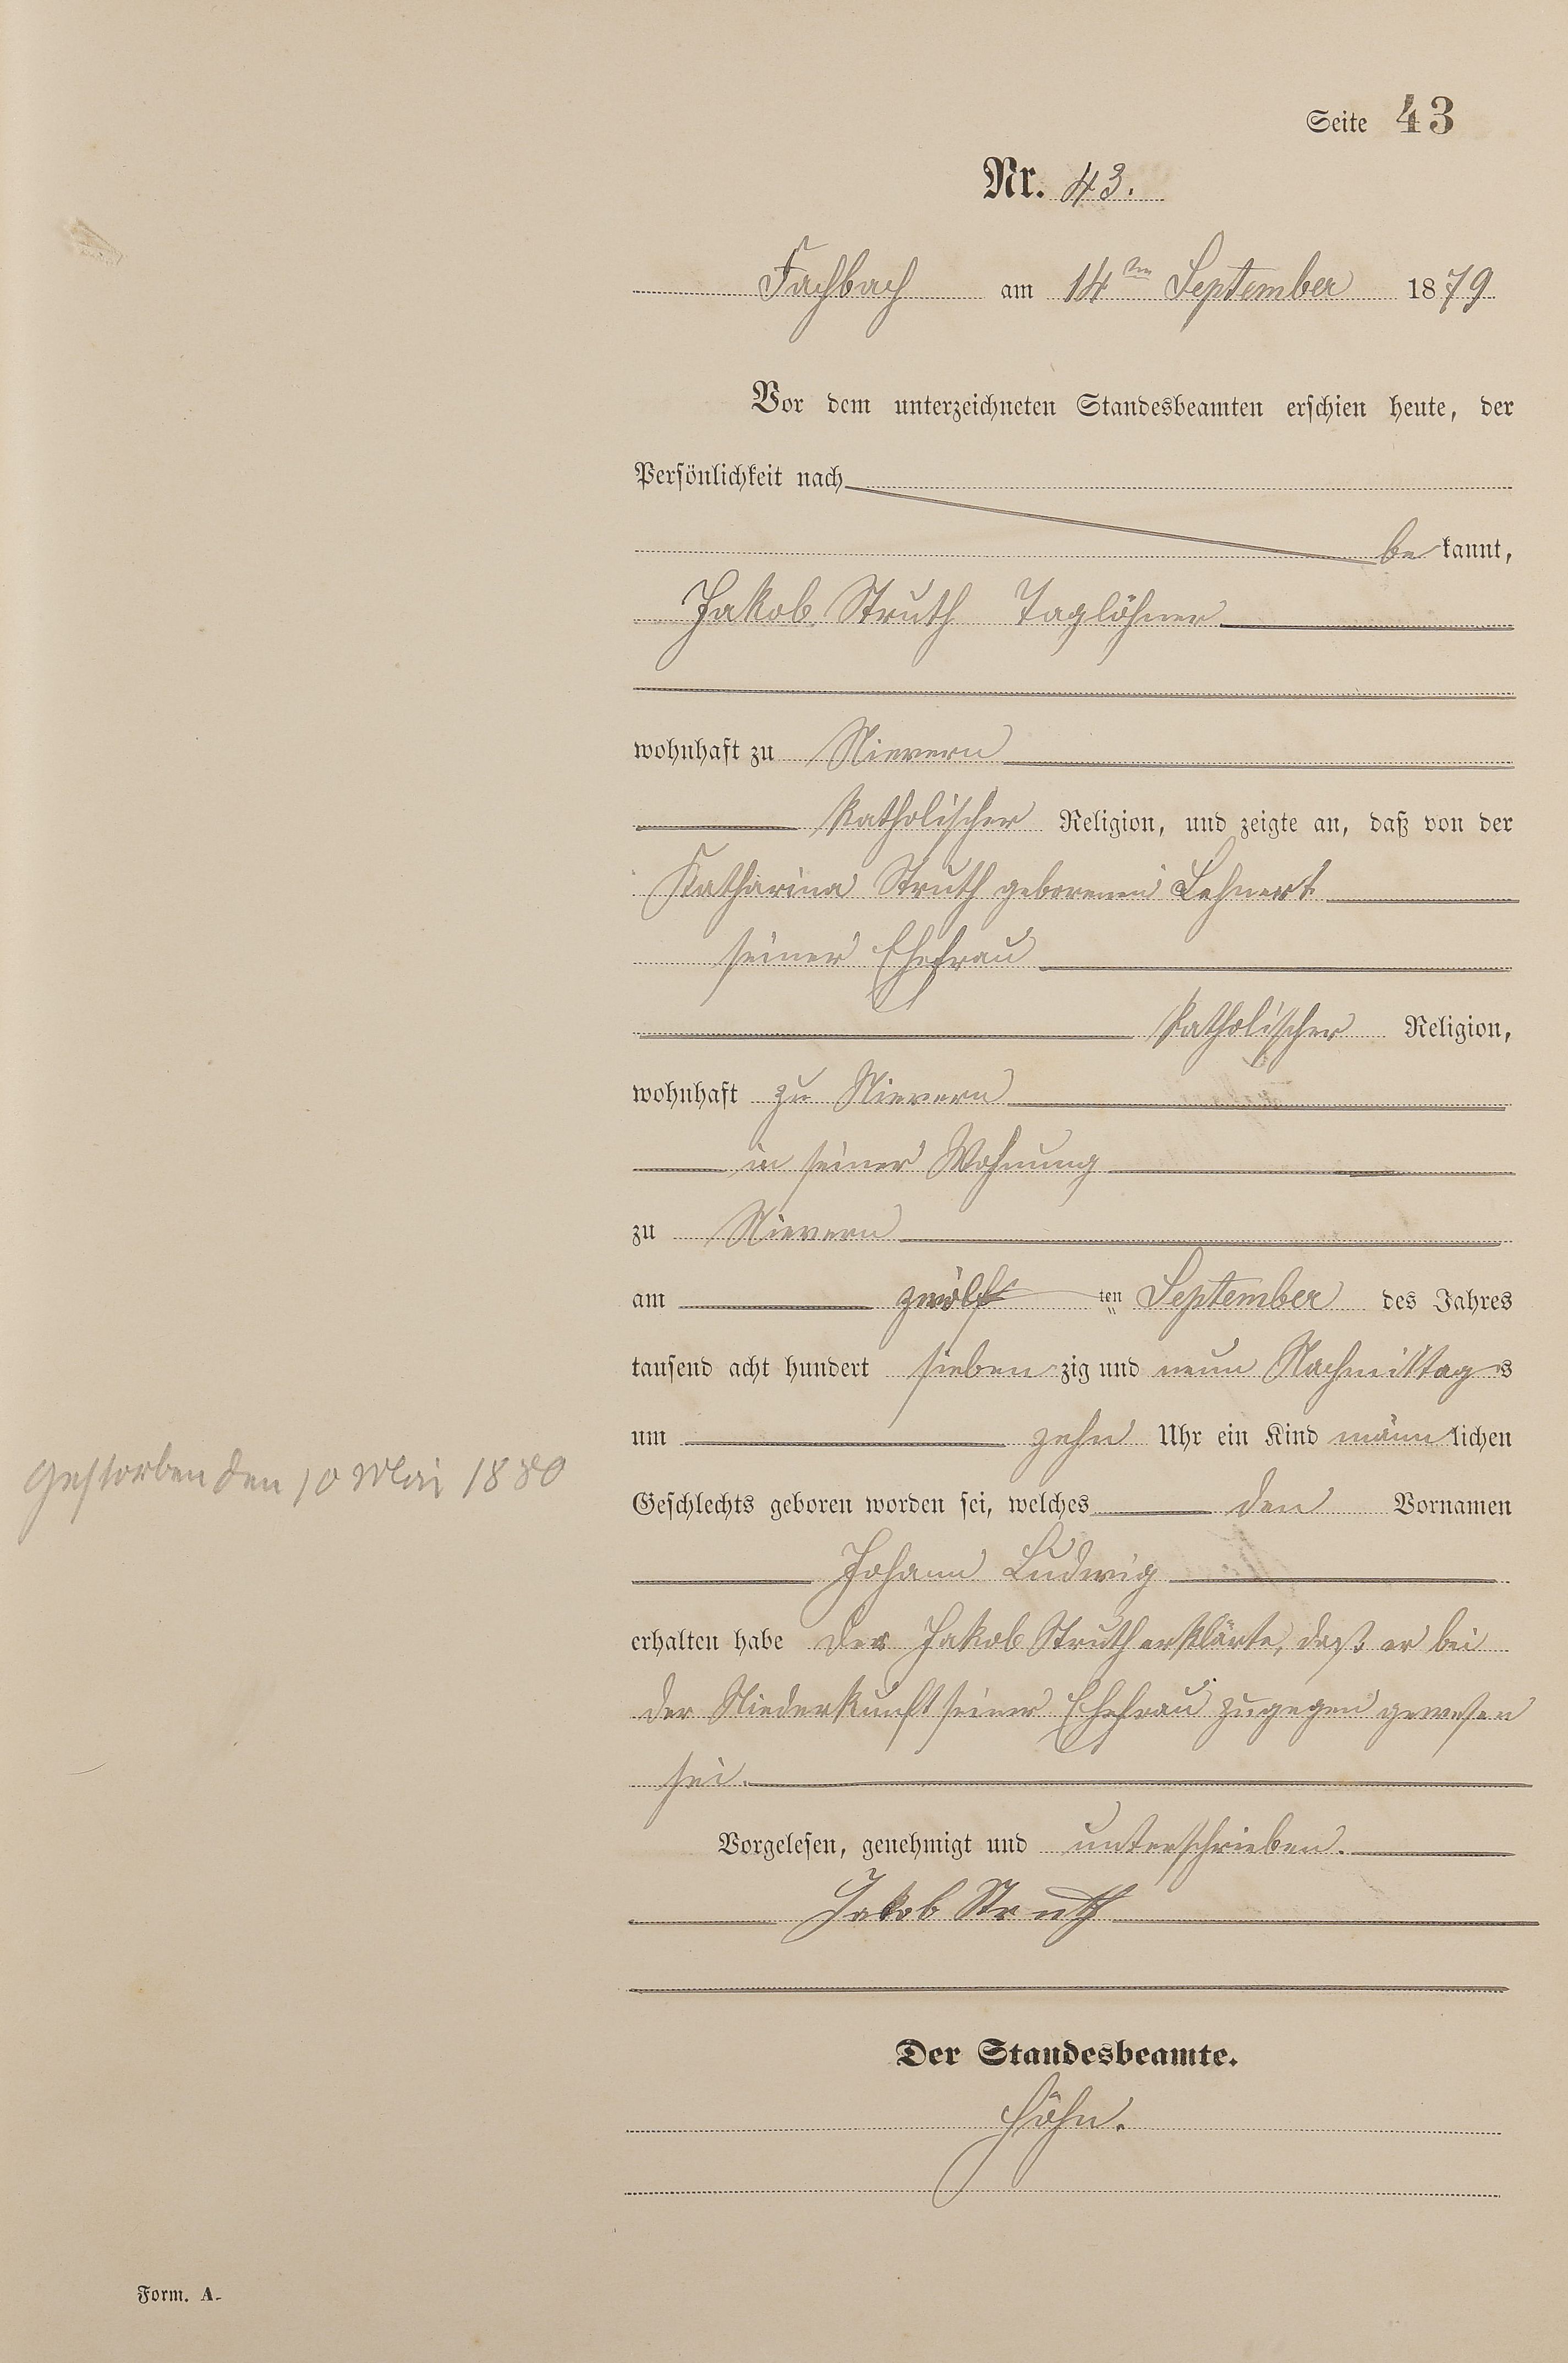 Seite 43
Nr. 43.
Fachbach am 14ten September 1879
Vor dem unterzeichneten Standesbeamten erschien heute, der
Persönlichkeit nach
be kannt,
Jakob Struth Taglöhner
wohnhaft zu Nievern
katholischer Religion, und zeigte an, daß von der
Katharina Struth geborenen Lehnert
seiner Ehefrau
katholischer Religion,
wohnhaft zu Nievern
in seiner Wohnung
zu Nievern
am zwölf ten September des Jahres
tausend acht hundert sieben zig und neun Nachmittag s
um zehn Uhr ein Kind männ lichen
Gestorben den 10 Mai 1880
Geschlechts geboren worden sei, welches den Vornamen
Johann Ludwig
erhalten habe Der Jakob Struth erklärte, daß er bei
der Niederkunft seiner Ehefrau zugegen gewesen
sei.
Vorgelesen, genehmigt und unterschrieben.
Jakob Struth
Der Standesbeamte.
Höhn.
Form. A.